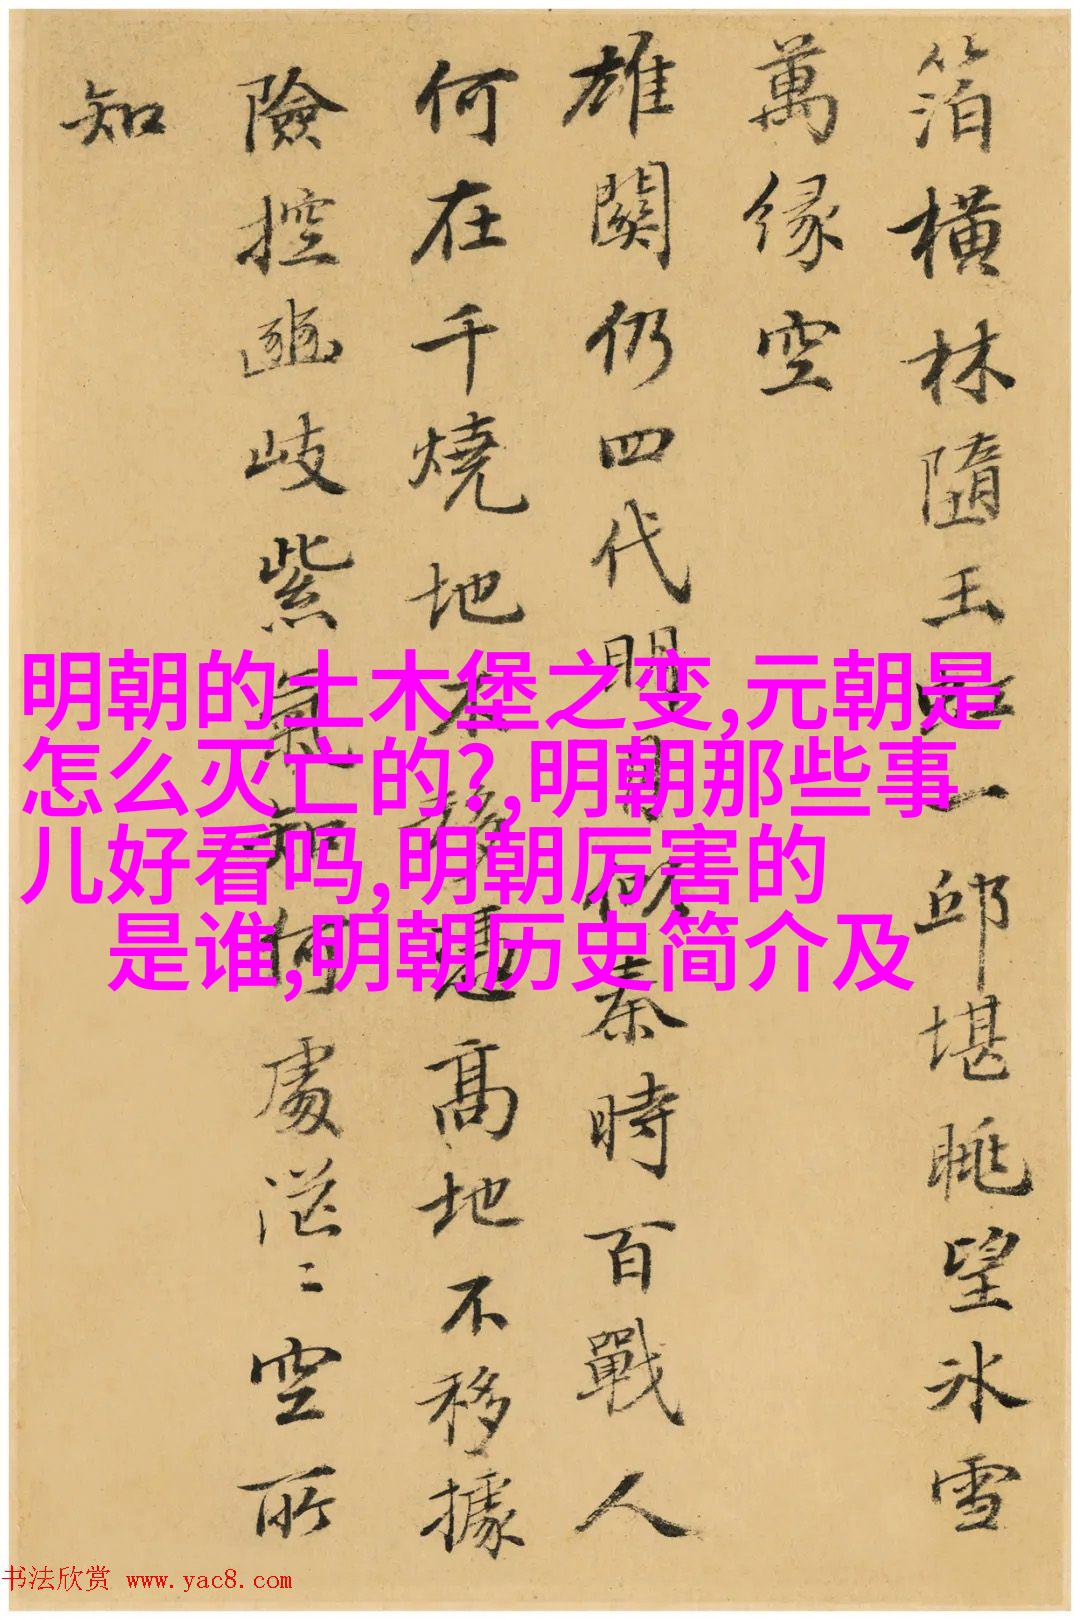 箔橫林隨玉
一邱堪眺望冰雪
萬緣空
雄關仍四代明月
秦時百戰人
何在千燒地
憑高地不移據
險控幽岐紫氣
何處茫〻空所
知
明朝的土木堡之变,元朝是
怎么灭亡的?,明朝那些事
儿好看吗,明朝厉害的
是谁,明朝历史简介及
书法欣赏 www.yac8.com